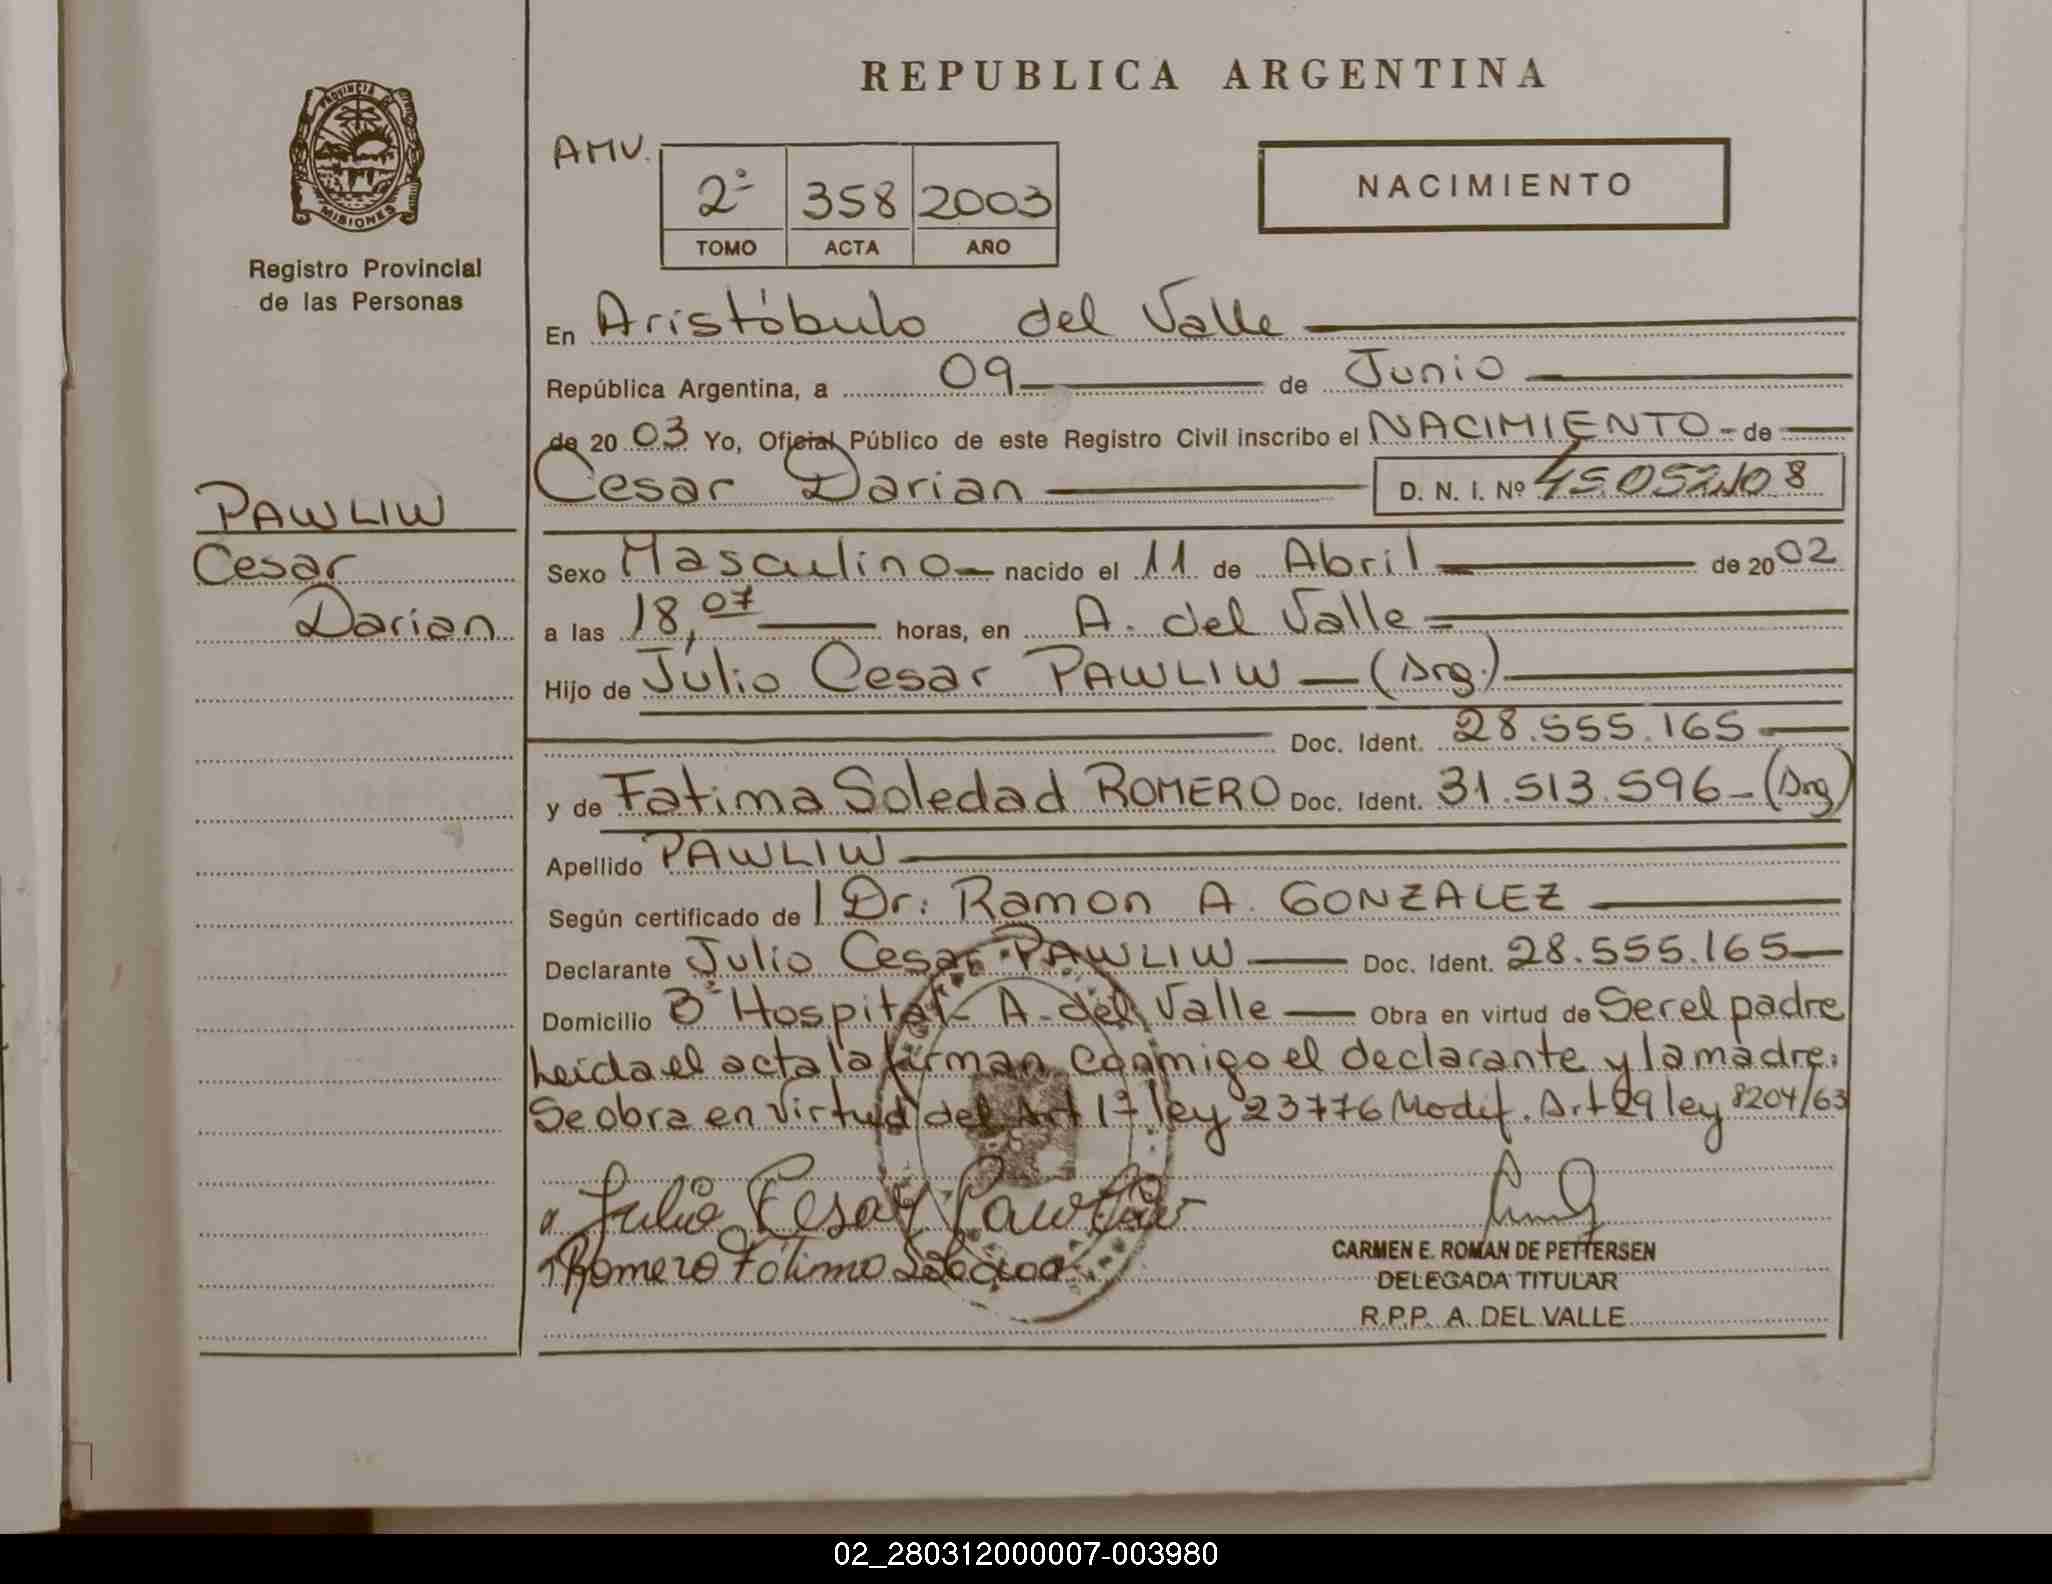 REPUBLICA ARGENTINA
PROVINCIA DE
MISIONES
Registro Provincial
de las Personas
AMV.
2º 358 2003
TOMO ACTA AÑO
NACIMIENTO
En Aristóbulo del Valle
República Argentina, a 09 de Junio
de 20 03 Yo, Oficial Público de este Registro Civil inscribo el NACIMIENTO - de
Cesar Darian D. N. I. Nº 45.052.108
PAWLIW
Cesar
Darian
Sexo Masculino nacido el 11 de Abril de 20 02
a las 18,07 horas, en A. del Valle
Hijo de Julio Cesar PAWLIW - (Arg.)
Doc. Ident. 28.555.165
y de Fatima Soledad ROMERO Doc. Ident. 31.513.596 - (Arg)
Apellido PAWLIW
Según certificado de Dr: Ramon A. GONZALEZ
Declarante Julio Cesar PAWLIW Doc. Ident. 28.555.165
Domicilio Bº Hospital - A. del Valle Obra en virtud de Ser el padre
Leida el acta la firman conmigo el declarante y la madre.
Se obra en virtud del Art 1º ley 23776 Modif. Art 29 ley 8204/63
Julio Cesar Pawliw
Romero Fátima
CARMEN E. ROMAN DE PETTERSEN
DELEGADA TITULAR
R.P.P. A. DEL VALLE
02_280312000007-003980